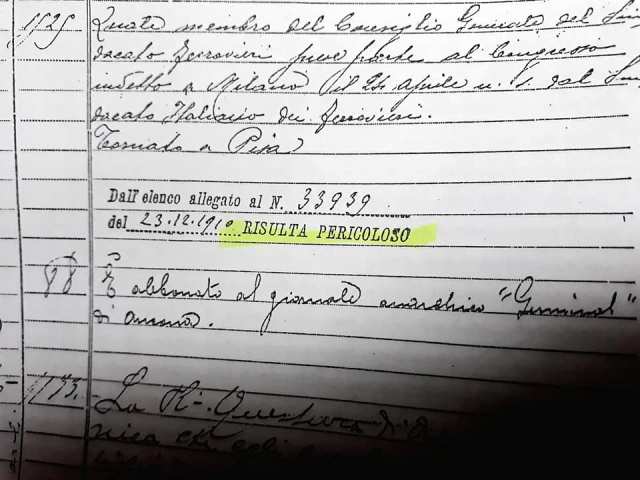 1525 Quale membro del Consiglio Generale del Sin-
dacato Ferrovieri prese parte al Congresso
indetto a Milano il 24 aprile u. s. dal Sin-
dacato Italiano dei ferrovieri.
Tornato a Pisa
Dall'elenco allegato al N. 33939
del 23.12.1910 RISULTA PERICOLOSO
È abbonato al giornale anarchico "Germinal"
di Ancona.
La R. Questura di
nica che egli